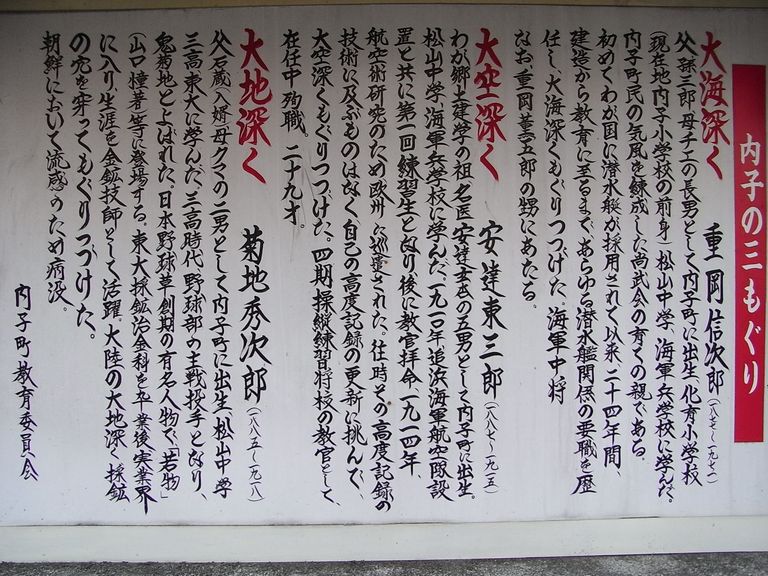 内子の三もぐり
大海深く 重岡信次郎（一八八七～一九七一）
父孫三郎・母チエの長男として内子町に出生、化育小学校
（現在地内子小学校の前身）松山中学、海軍兵学校に学んだ。
内子町民の気風を練成した尚武会の育ての親である。
初めてわが国に潜水艇が採用されて以来、二十四年間、
建造から教育に至るまで、あらゆる潜水艦関係の要職を歴
任し、大海深くもぐりつづけた。海軍中将
なお、重岡薫五郎の甥にあたる。
大空深く 安達東三郎（一八八七～一九一五）
わが郷土建学の祖、名医安達玄杏の五男として内子町に出生。
松山中学、海軍兵学校に学んだ。一九一〇年追浜海軍航空隊設
置と共に第一回練習生となり、後に教官拝命、一九一四年、
航空術研究のため欧州に巡遊された。往時その高度記録の
技術に及ぶものはなく、自己の高度記録の更新に挑んで、
大空深くもぐりつづけた。四期操縦練習将校の教官として、
在任中殉職、二十九才。
大地深く 菊地秀次郎（一八八五～一九一八）
父石蔵・入婿・母クマの二男として内子町に出生、松山中学
三高・東大に学んだ。三高時代、野球部の主戦投手となり、
鬼菊地とよばれた。日本野球草創期の有名人物で、「若物」
（山口憧著）等に登場する。東大採鉱冶金科を卒業後、実業界
に入り、生涯を金鉱技師として活躍。大陸の大地深く採鉱
の穴を穿ってもぐりつづけた。
朝鮮において流感のため病没。
内子町教育委員会